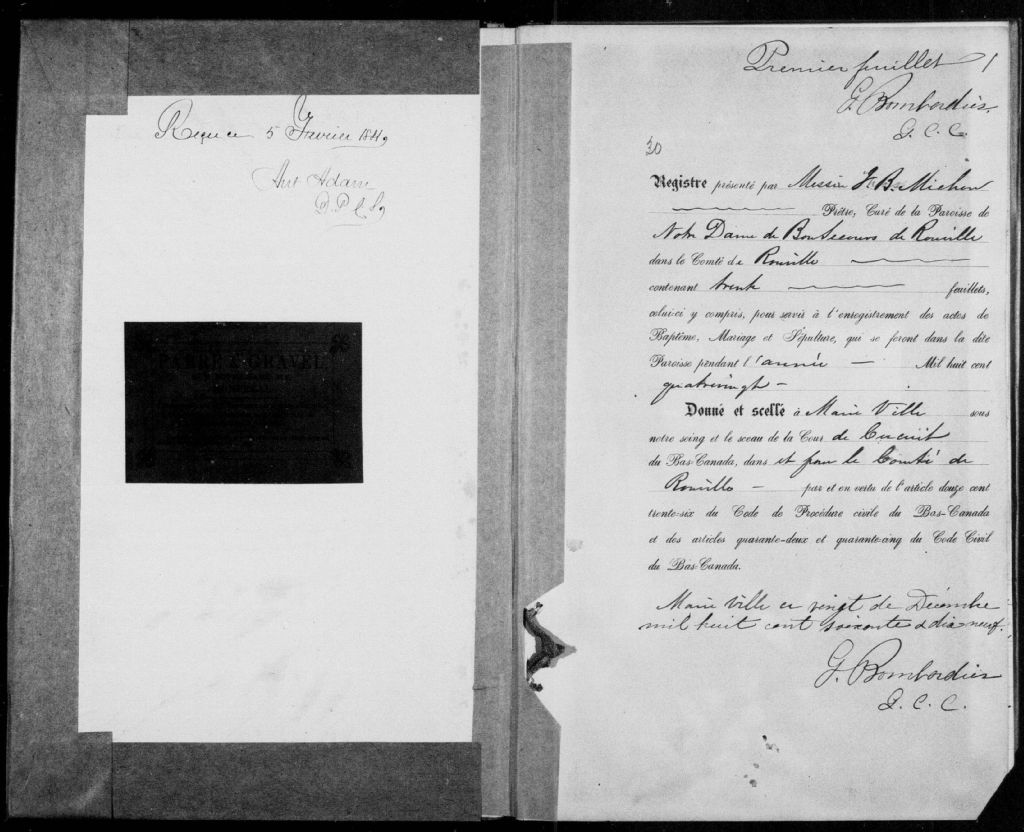 Reçu ce 5 Février 1881
Ant Adam
D. P. C. S.
FABRE & GRAVEL
Premier feuillet 1
G. Bombardier
G. C. C.
30
Registre présenté par Messire J. B. Michon
Prêtre, Curé de la Paroisse de
Notre Dame de Bonsecours de Rouville
dans le Comté de Rouville
contenant trente feuillets,
celui-ci y compris, pour servir à l'enregistrement des actes de
Baptême, Mariage et Sépulture, qui se feront dans la dite
Paroisse pendant l'année — Mil huit cent
quatrevingt —
Donné et scellé à Marie Ville sous
notre seing et le sceau de la Cour de Circuit
du Bas-Canada, dans et pour le Comté de
Rouville — par et en vertu de l'article douze cent
trente-six du Code de Procédure civile du Bas-Canada
et des articles quarante-deux et quarante-cinq du Code Civil
du Bas-Canada.
Marie Ville ce vingt de Décembre
mil huit cent soixante & dix neuf.
G. Bombardier
G. C. C.